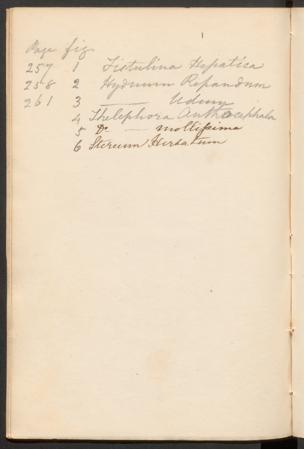 Page fig
257 1 Fistulina Hepatica
258 2 Hydnum Repandum
261 3 —— Udum
4 Thelephora Anthocephala
5 Do — mollissima
6 Stereum Hirsutum